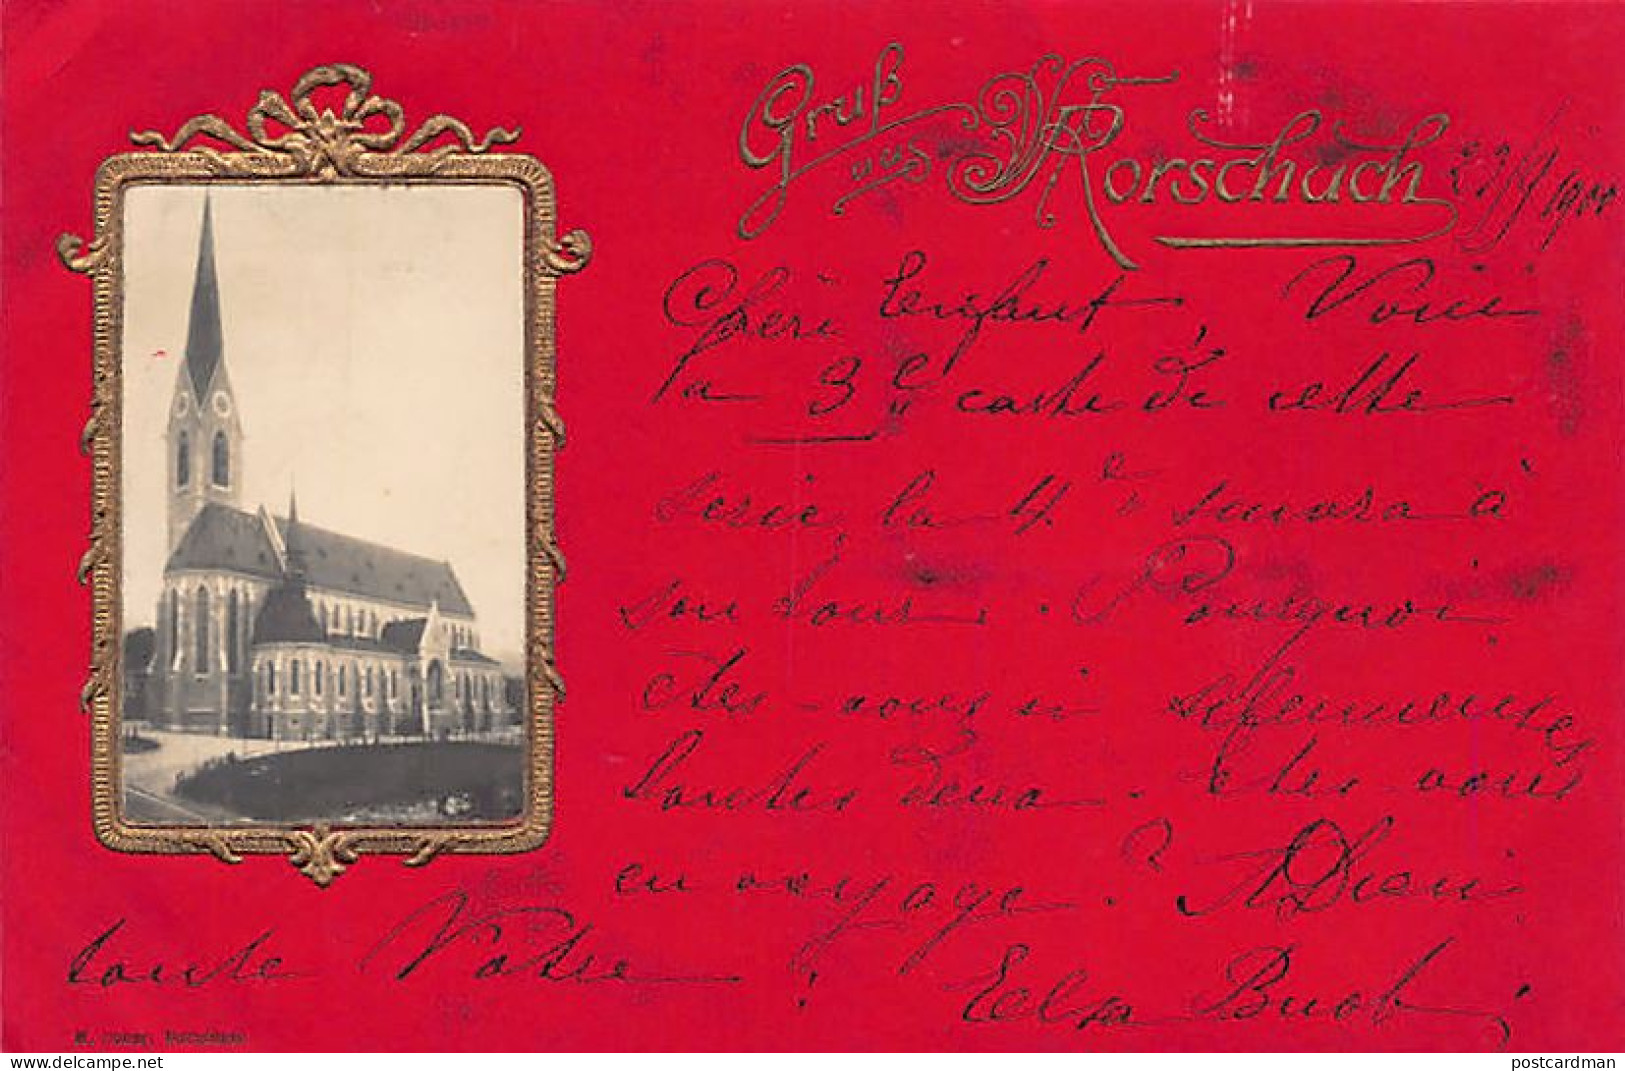 Gruß aus Rorschach
27/9 1900
Chéri Enfant, Voici
la 3e carte de cette
serie, la 4e suivra à
son tour. Pourquoi
êtes-vous si silencieuses
toutes deux. êtes vous
en voyage? Adieu
toute Votre! Elsa Buob
postcardman